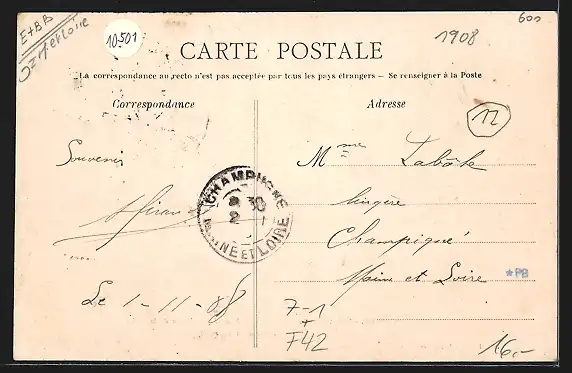 E+BB
10501
1908
600
CARTE POSTALE
La correspondance au recto n'est pas acceptée par tous les pays étrangers – Se renseigner à la Poste
Correspondance
Adresse
12
Souvenir
Le 1-11-08
CHAMPIGNÉ
NE ET LOIRE
Mme
lingère
Champigné
Maine et Loire
*PB
7-1
+
F42
16,-